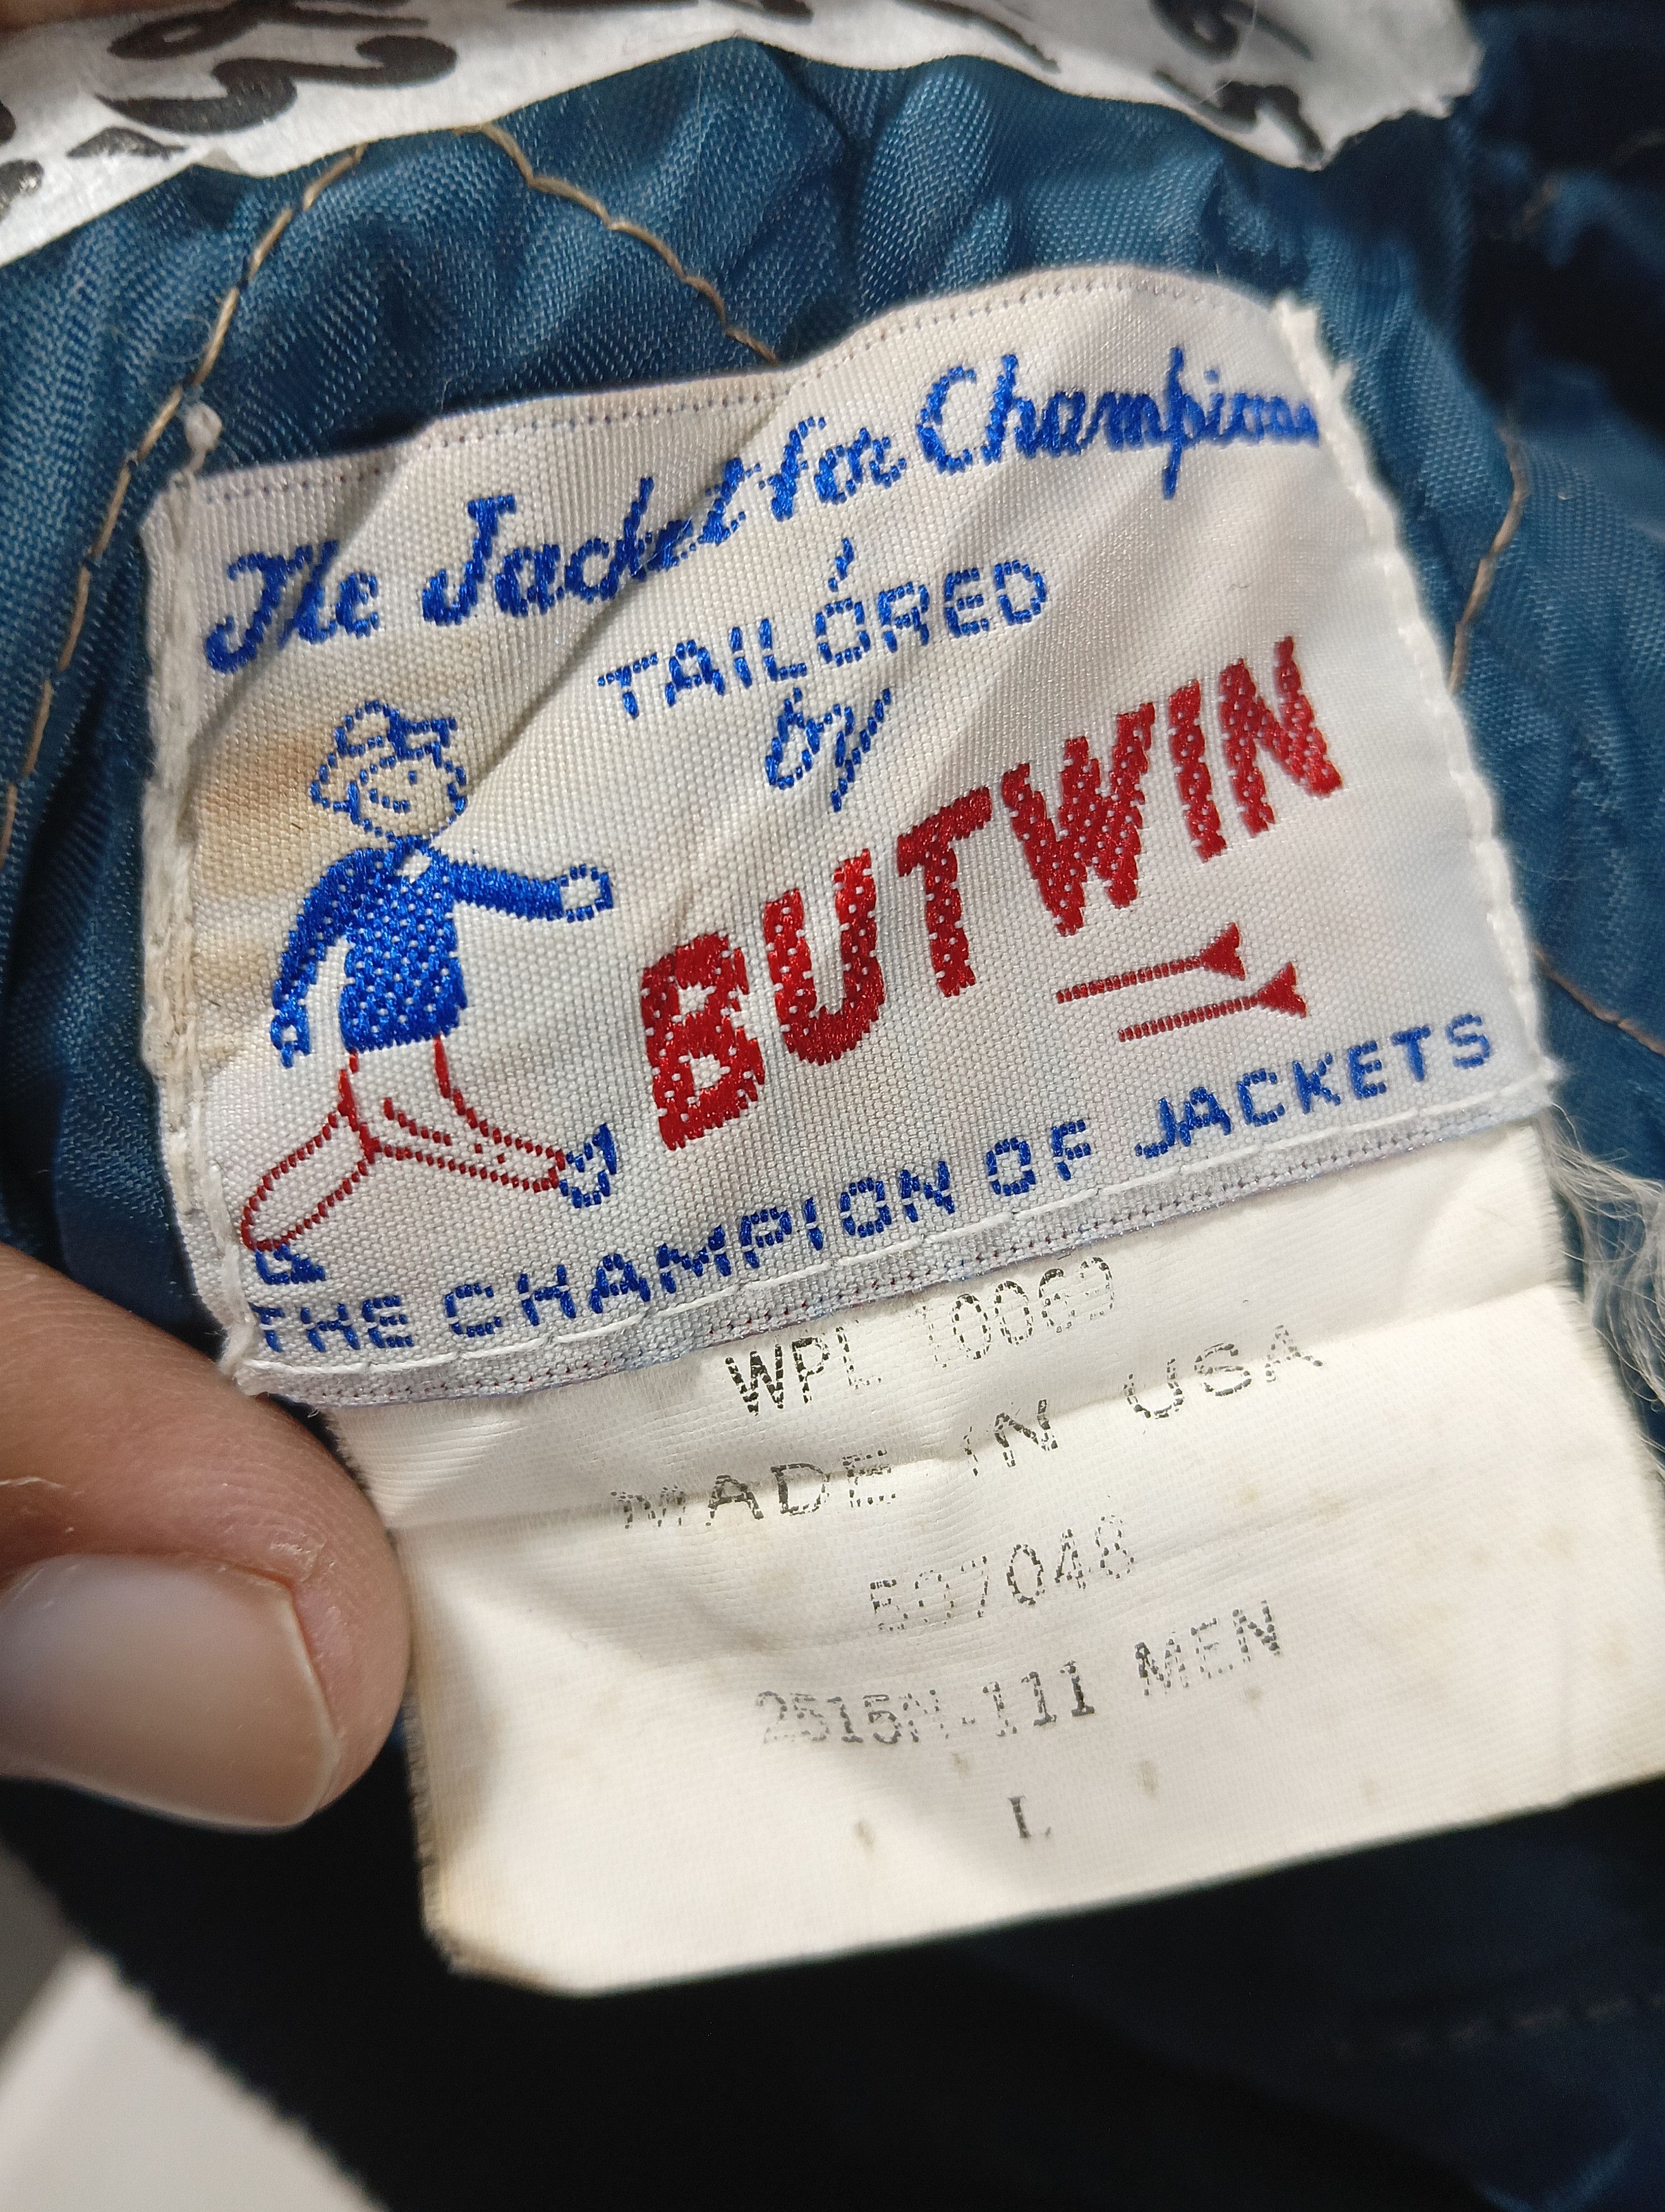 The Jacket for Champions
TAILORED
by
BUTWIN
THE CHAMPION OF JACKETS
WPL 10069
MADE IN USA
507048
2515N-111 MEN
L